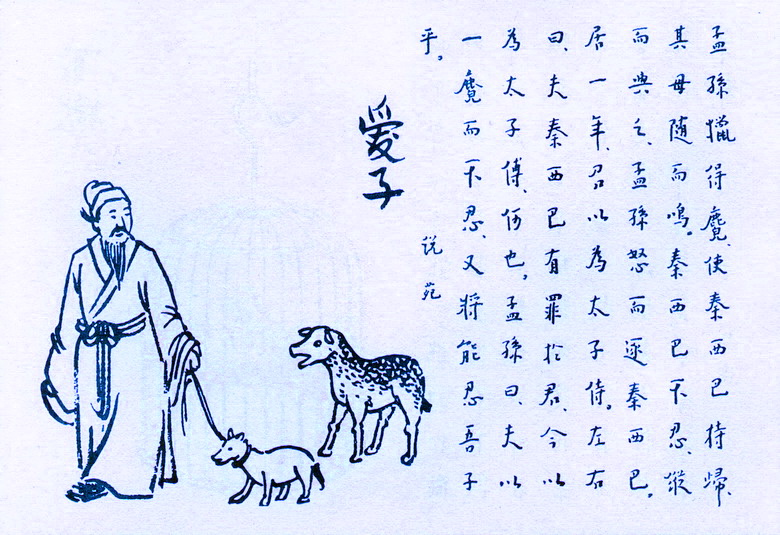 孟孫獵得麑、使秦西巴持歸、
其母随而鳴。秦西巴不忍、縱
而與之、孟孫怒而逐秦西巴。
居一年、召以為太子侍。左右
曰、夫秦西巴有罪於君、今以
為太子傅、何也。孟孫曰、夫以
一麑而不忍、又将能忍吾子
乎。
説苑
愛子